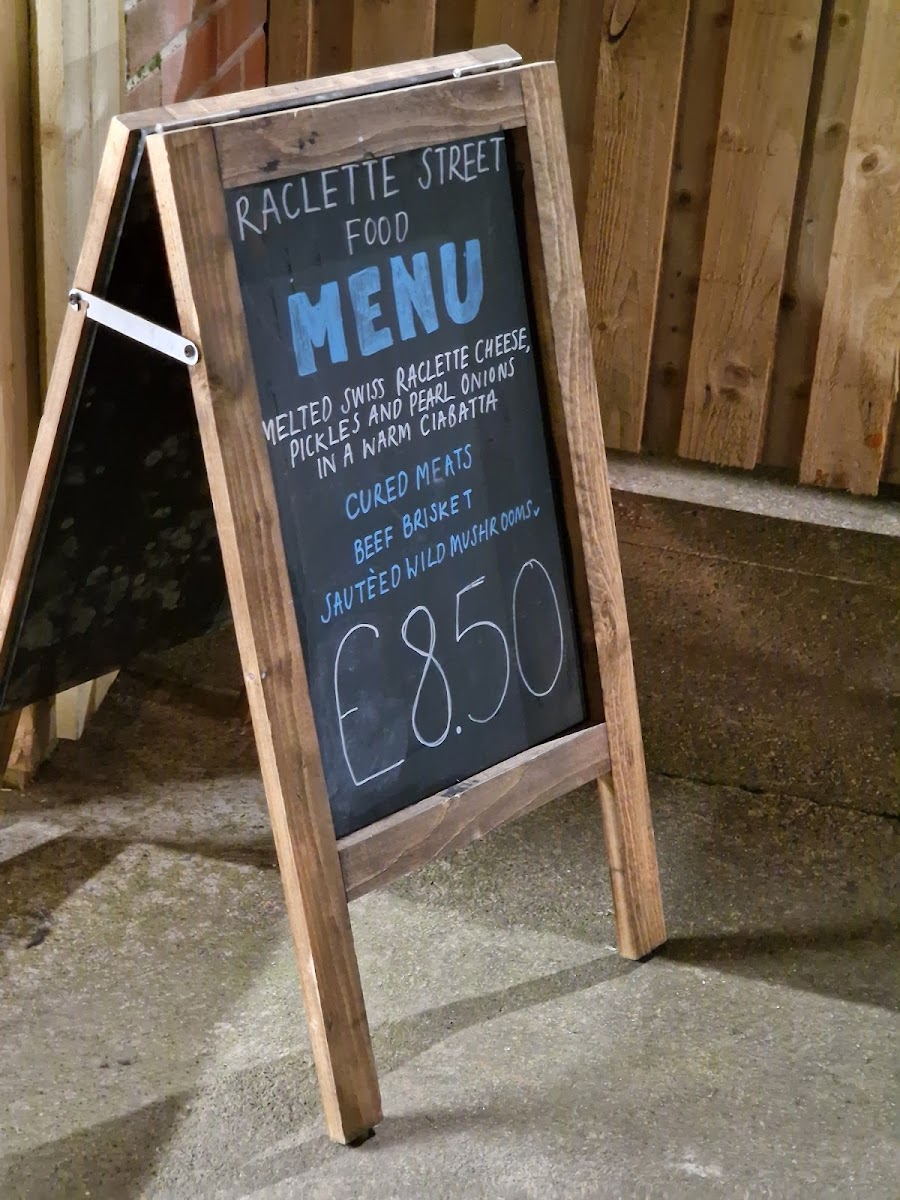 RACLETTE STREET
FOOD
MENU
MELTED SWISS RACLETTE CHEESE,
PICKLES AND PEARL ONIONS
IN A WARM CIABATTA
CURED MEATS
BEEF BRISKET
SAUTÈED WILD MUSHROOMS v
£8.50